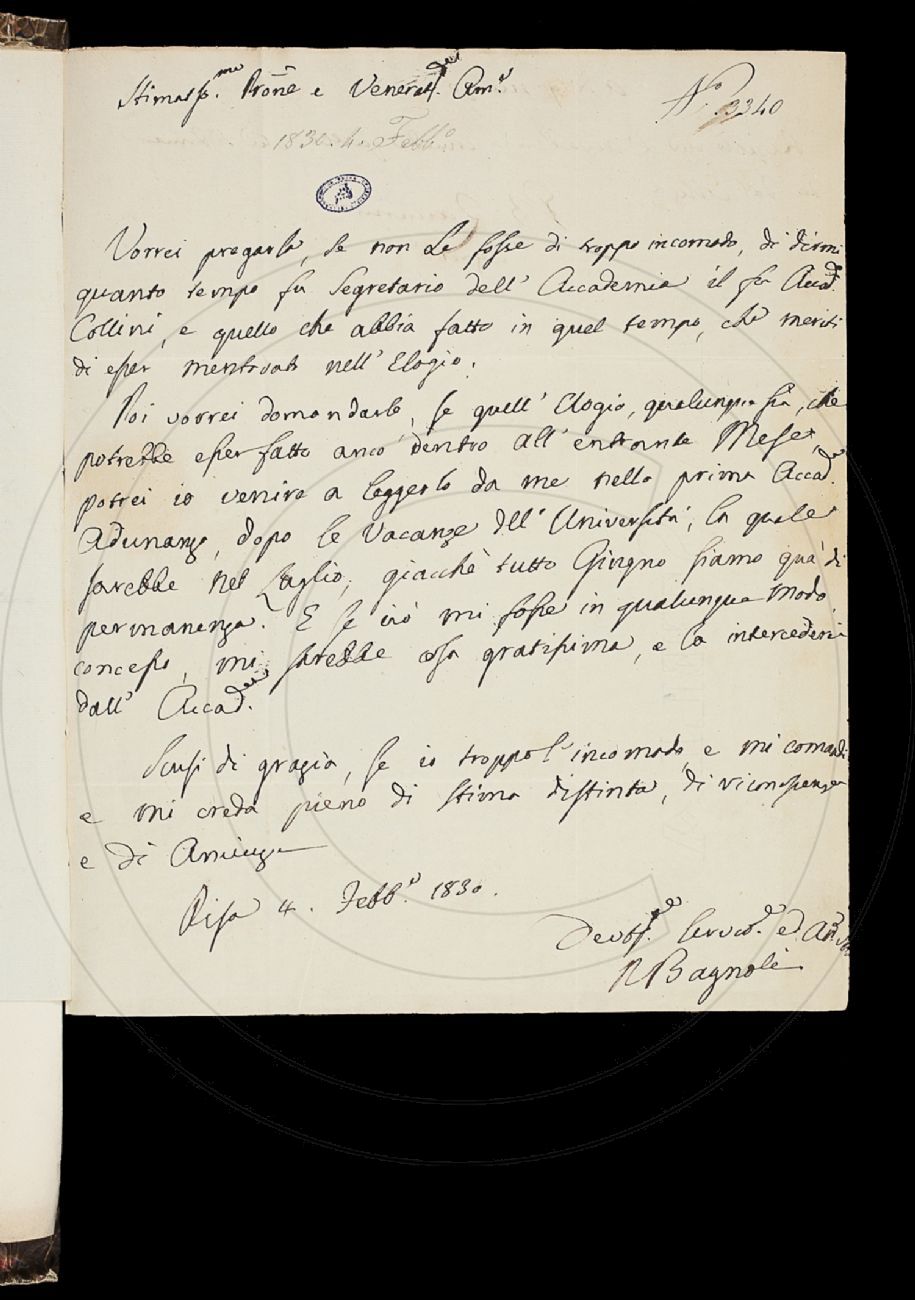 Stimatiss.mo Prone e Veneratiss. Am.o
N.o 3340
1830. 4. Febb.o
Vorrei pregarla, se non Le fosse di troppo incomodo, di dirmi
quanto tempo fu Segretario dell' Accademia il fu Accad.
Collini, e quello che abbia fatto in quel tempo, che meriti
di esser mentovato nell' Elogio.
Poi vorrei domandarle, se quell' Elogio, qualunque sia, che
potrebbe esser fatto anco dentro all' entrante Mese,
potrei io venire a leggerlo da me nella prima Accad.
Adunanza, dopo le Vacanze dell' Università, la quale
sarebbe nel Luglio, giacchè tutto Giugno siamo quà di
permanenza. E se ciò mi fosse in qualunque modo
concesso, mi sarebbe cosa gratissima, e la intercederei
dall' Accad.
Scusi di grazia, se io troppo l'incomodo, e mi comandi
e mi creda pieno di stima distinta, di riconoscenza
e di Amicizia
Pisa 4. Febb.o 1830.
Devotiss. Servid.e ed Am.o
P Bagnoli